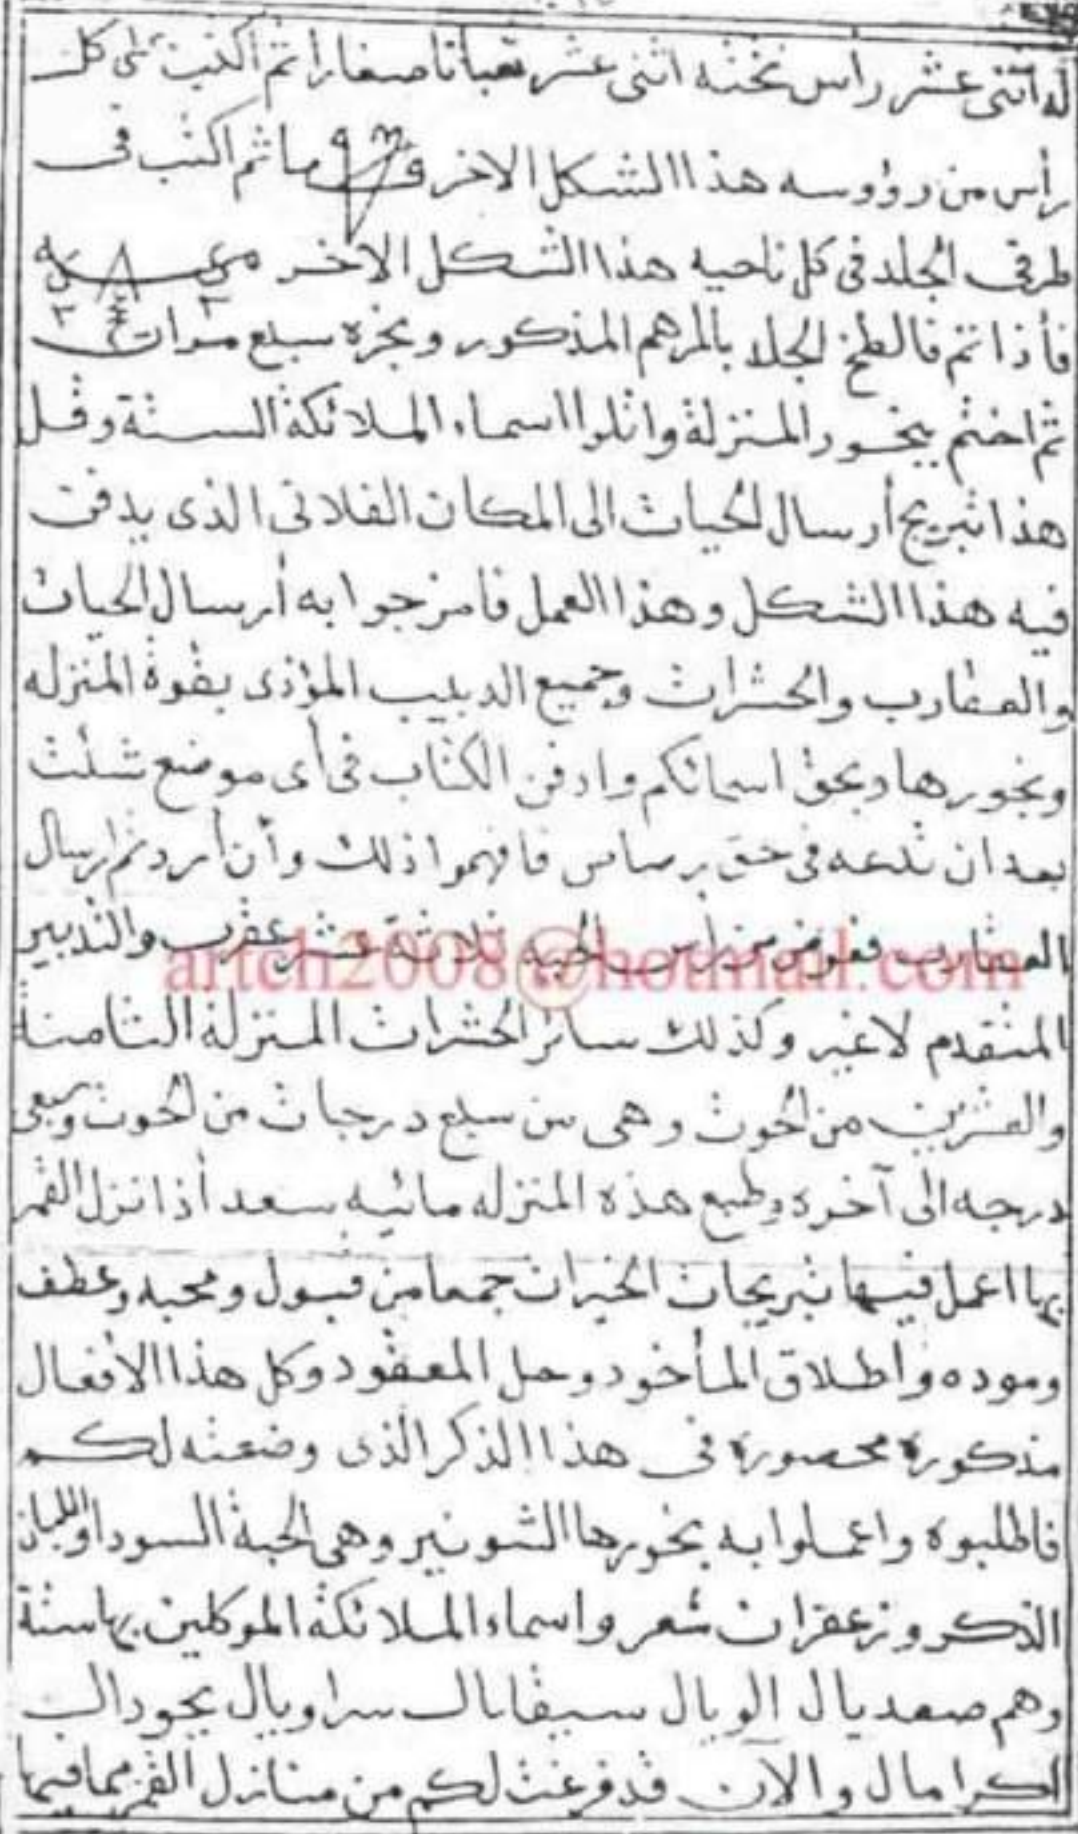 له اثنى عشر راس تحته اثنى عشر ثعبانا صغارا ثم اكتب على كل
رأس من رؤوسه هذا الشكل الاخر ثم اكتب فى
طرفى الجلد فى كل ناحيه هذا الشكل الاخر
فأذا تم فالطخ الجلد بالمرهم المذكور وبخره سبع مرات
ثم اختم ببخور المنزلة واتلوا اسماء الملائكة الستة وقل
هذا تبريج أرسال الحيات الى المكان الفلانى الذى يدفن
فيه هذا الشكل وهذا العمل فامزجوا به أرسال الحيات
والعقارب والحشرات وجميع الدبيب المؤذى بقوة المنزله
وبخورها وبحق اسمائكم وادفن الكتاب فى أى موضع شئت
بعد ان تدعه فى حق برصاص فافهموا ذلك وأن أردتم ارسال
العقارب فعوض من رأس الحيه ثلاثة عشر عقرب والتدبير
artch2008@hotmail.com
المتقدم لاغير وكذلك سائر الحشرات المنزلة الثامنة
والعشرين من الحوت وهى من سبع درجات من الحوت
درجه الى آخره وطبع هذه المنزله مائيه سعد أذا نزل القمر
بها اعمل فيها تبريجات الخيرات جمعا من قبول ومحبه وعطف
وموده وأطلاق المأخود وحل المعقود وكل هذا الأفعال
مذكورة محصورة فى هذا الذكر الذى وضعته لكم
فاطلبوه واعملوا به بخورها الشونيز وهى الحبة السودا واللبان
الذكر وزعفران شعر واسماء الملائكة الموكلين بها ستة
وهم صعديال الويال سيقايال سراويال يجودال
الكرامال والآن قد فرغت لكم من منازل القمر بما فيها